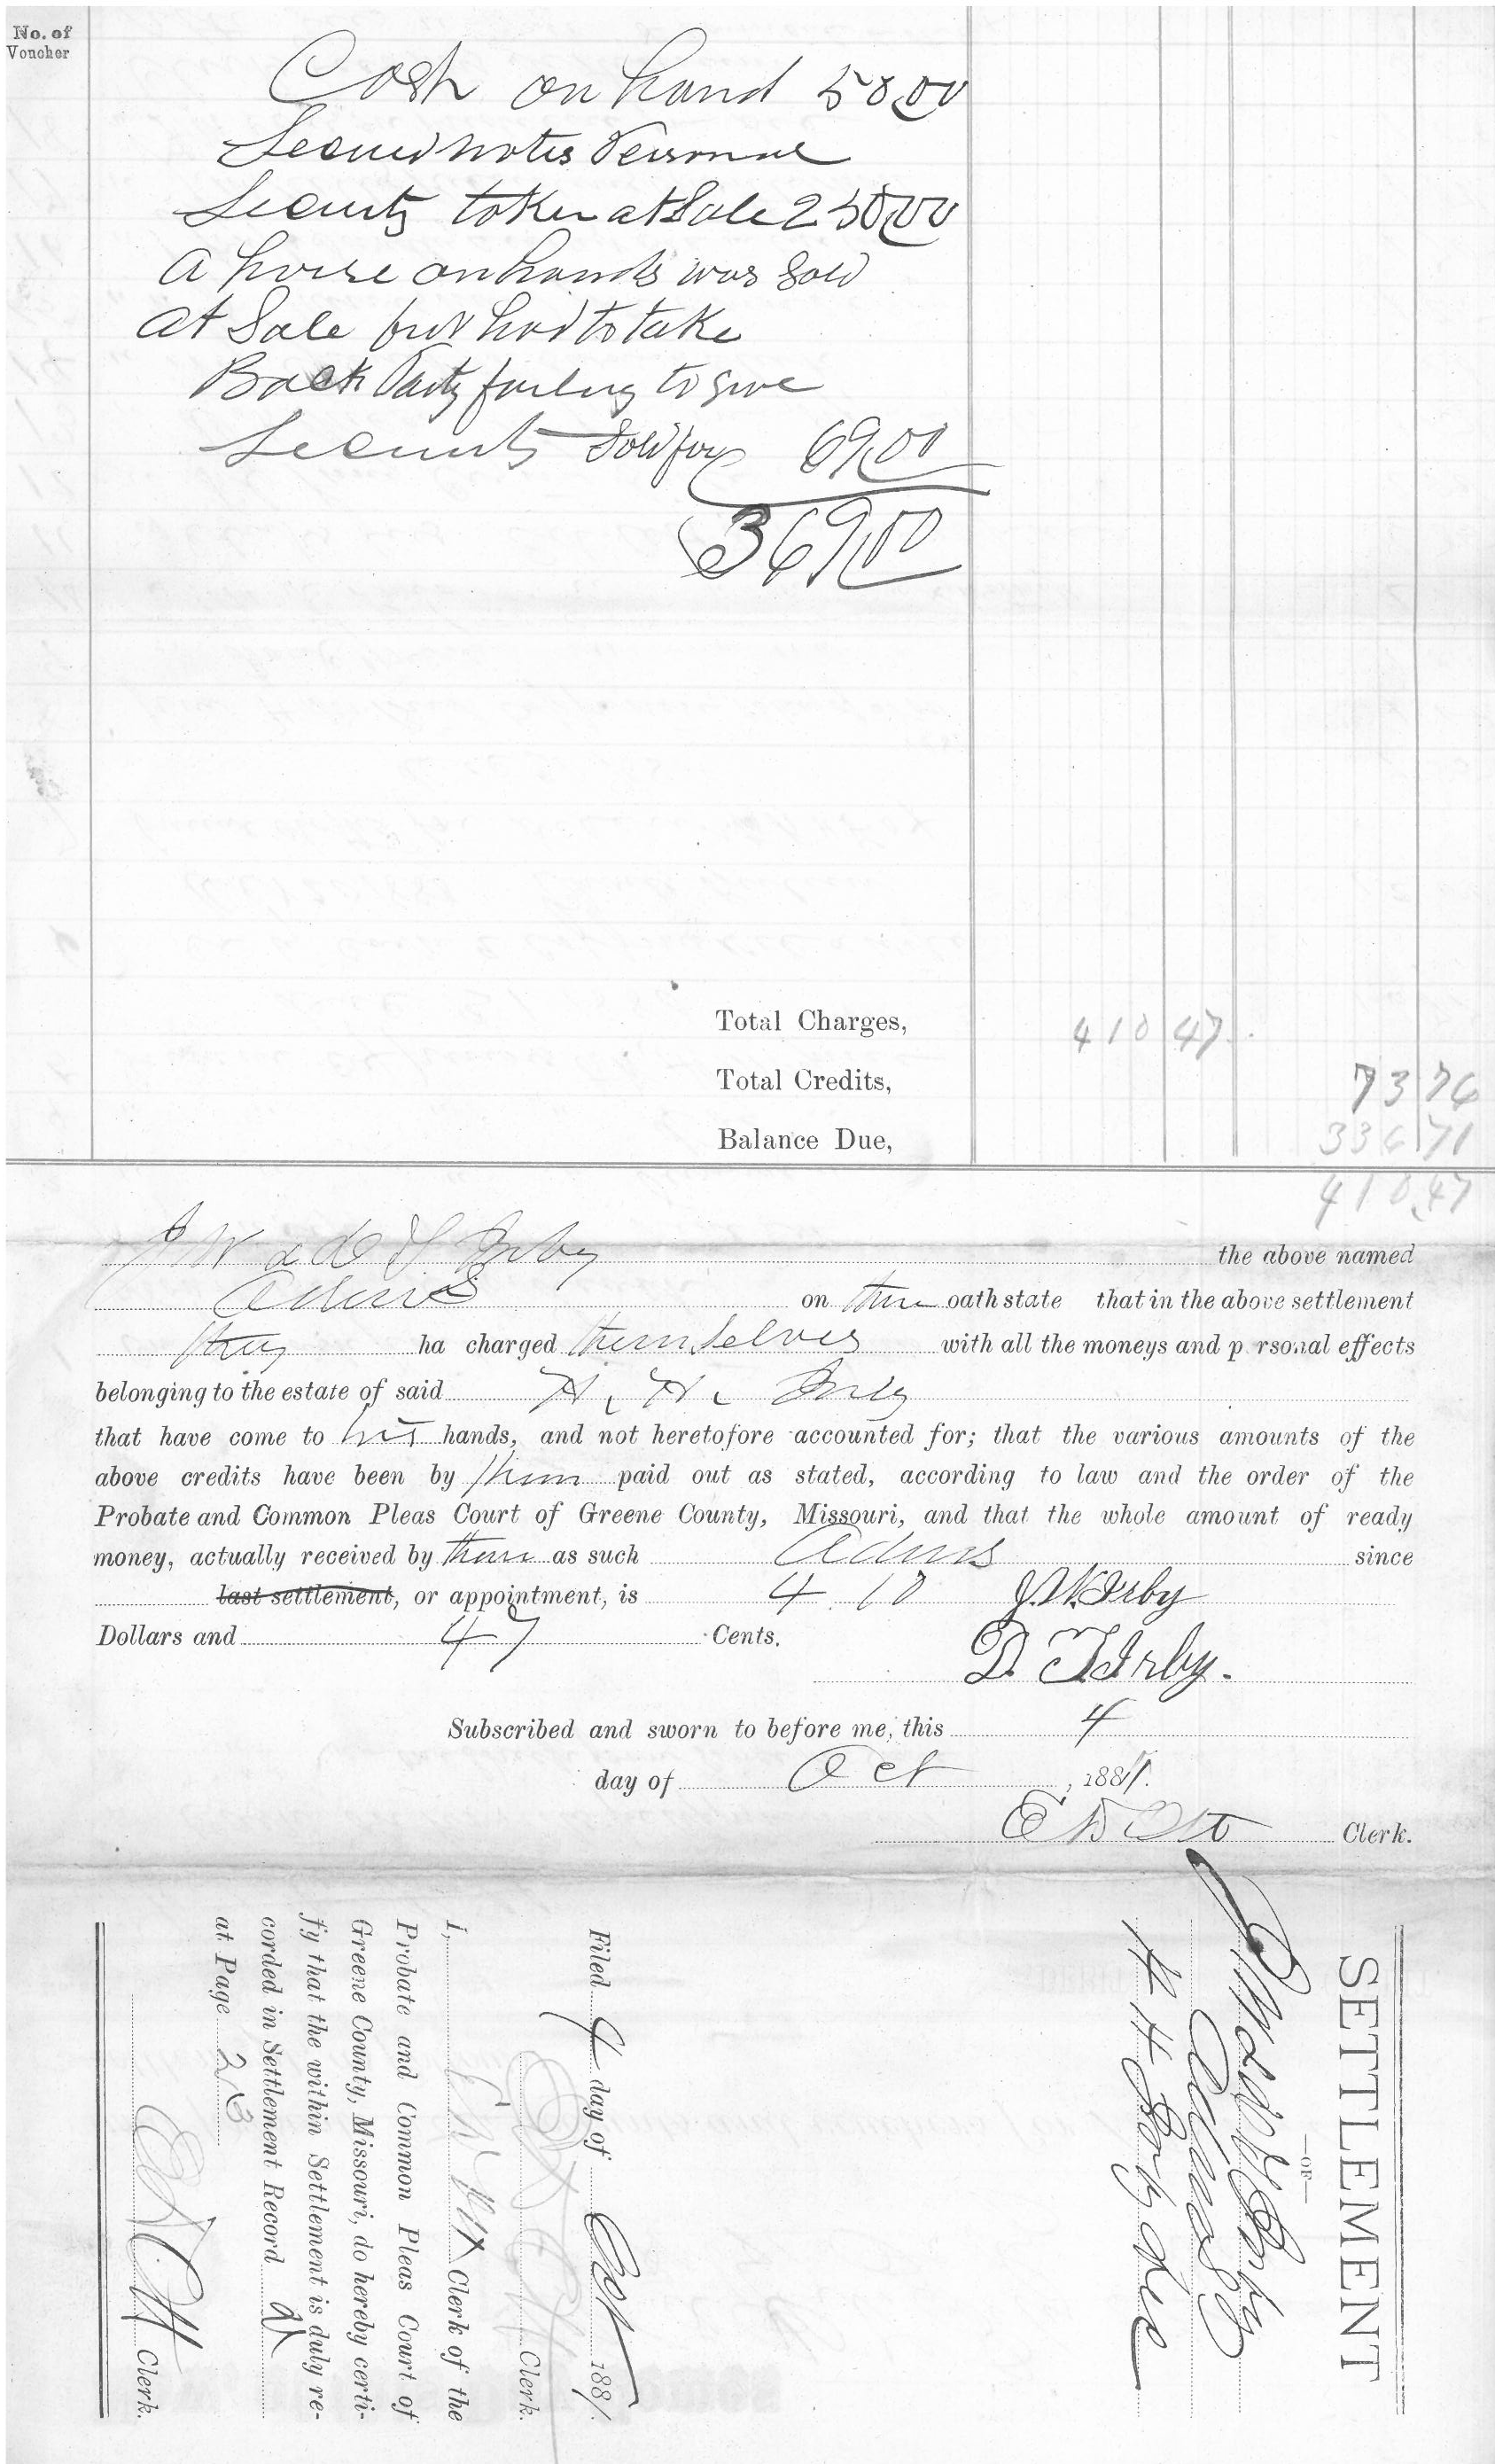 No. of
Voucher
Cash on hand 50.00
Secured notes Personal
Security taken at Sale 250.00
A horse on hands was Sold
at Sale but had to take
Back Party failing to give
Security Sold for 69.00
369.00
Total Charges, 410 47
Total Credits, 73 76
Balance Due, 336 71
410.47
J W & D T Irby the above named
Admrs on their oath state that in the above settlement
they ha charged themselves with all the moneys and p rsonal effects
belonging to the estate of said H. H. Irby
that have come to his hands, and not heretofore accounted for; that the various amounts of the
above credits have been by them paid out as stated, according to law and the order of the
Probate and Common Pleas Court of Greene County, Missouri, and that the whole amount of ready
money, actually received by them as such Admrs since
last settlement, or appointment, is 410 J. W. Irby
Dollars and 47 Cents. D. T. Irby.
Subscribed and sworn to before me, this 4
day of Oct, 1881.
E D Ott Clerk.
SETTLEMENT
—OF—
J W & D T Irby
Admrs
H H Irby Dec
Filed 4 day of Oct 1881.
Clerk.
I, Clerk of the
Probate and Common Pleas Court of
Greene County, Missouri, do hereby certi-
fy that the within Settlement is duly re-
corded in Settlement Record
at Page 213
Clerk.